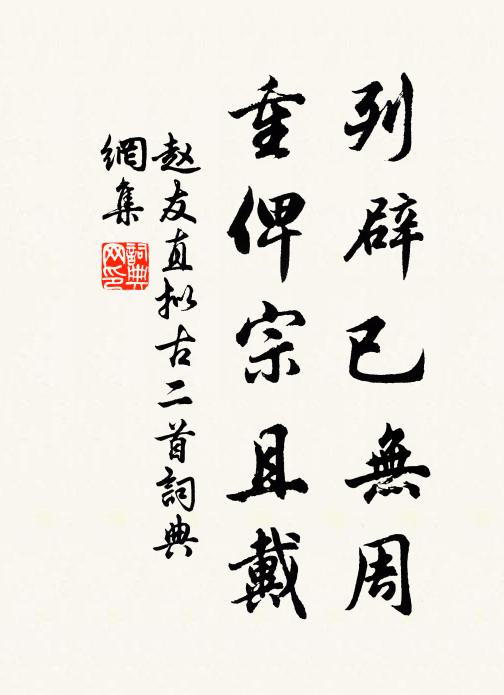 列辟已無周
重俾宗且戴
赵友直拟古二首詞典
網集
詞典
网印